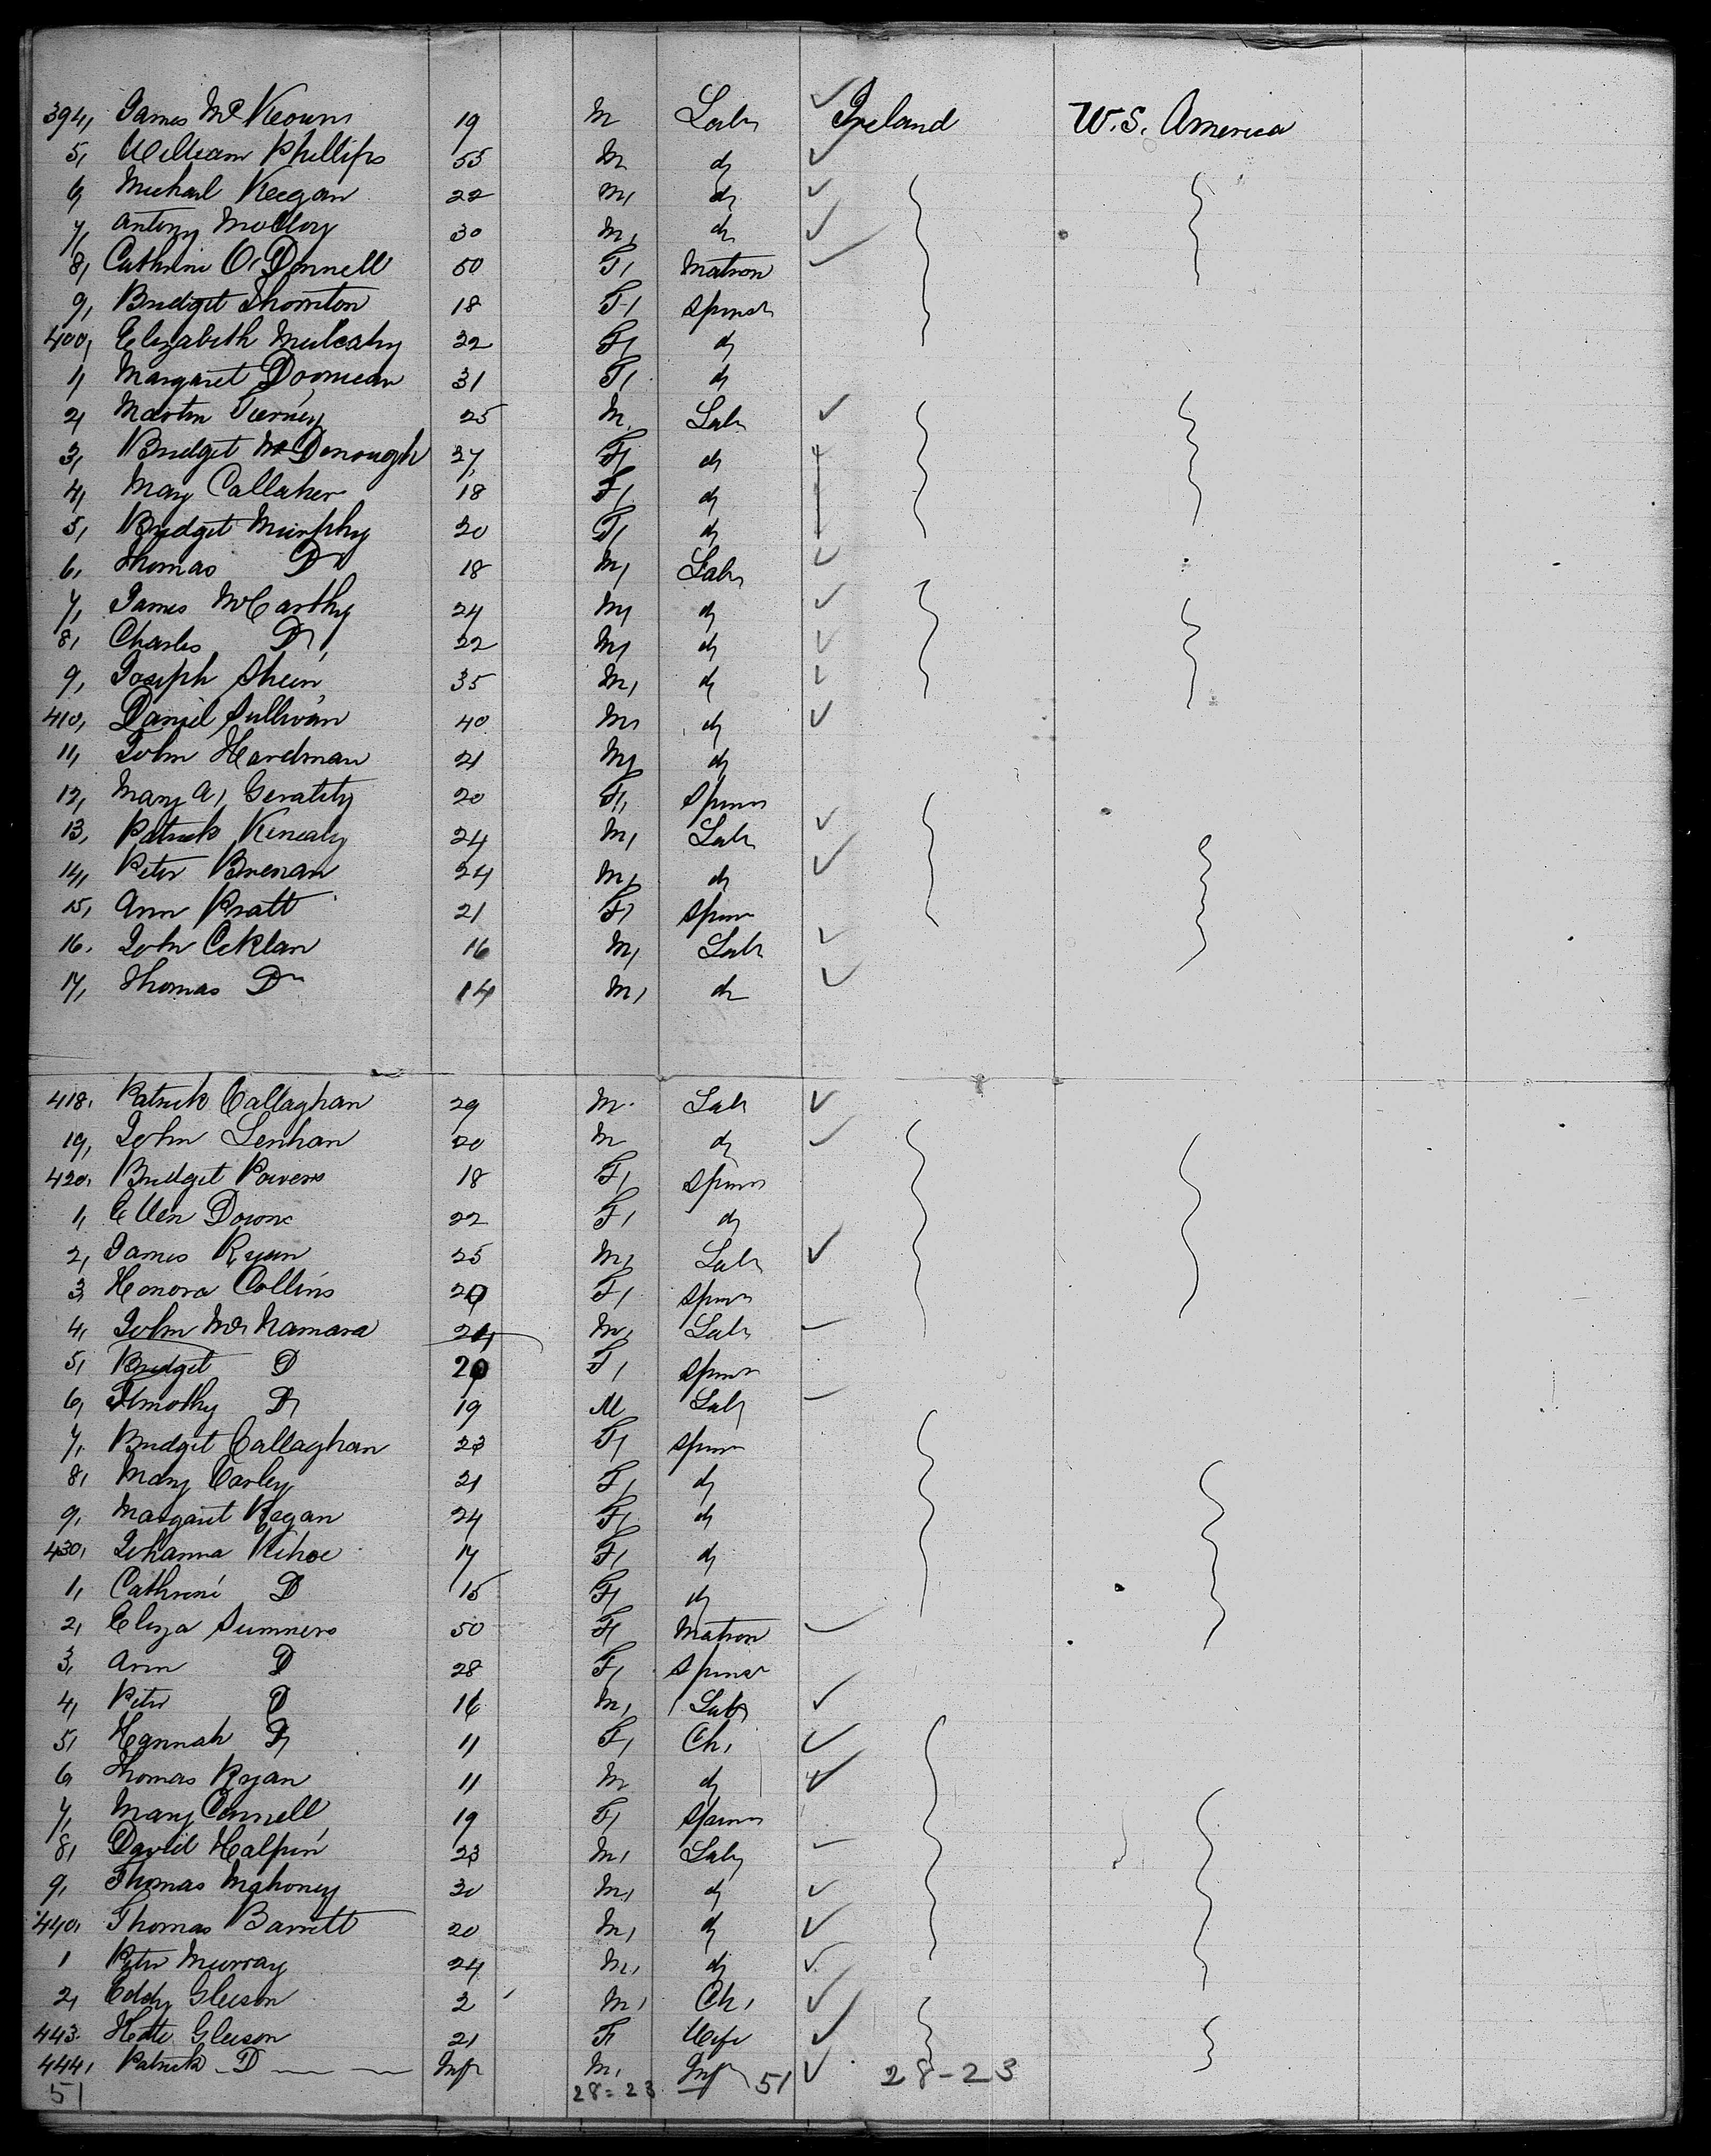 394, James McKeown 19 M Labr Ireland U.S. America
5, William Phillips 55 M do
6, Michael Keegan 22 M, do
7, Antony Molloy 30 M, do
8, Cathrine O'Donnell 50 F, Matron
9, Bridget Thornton 18 F, Spinsr
400, Elizabeth Mulcahy 32 F, do
1, Margaret 31 F, do
2, Martin Tierney 25 M, Labr
3, Bridget McDonough 27, F, do
4, Mary Callaher 18 F, do
5, Bridget Murphy 20 F, do
6, Thomas Do 18 M, Labr
7, James McCarthy 24 M, do
8, Charles Do, 22 M, do
9, Joseph Shein 35 M, do
410, Daniel Sullivan 40 M, do
11, John Hardman 21 M, do
12, Mary A, Geratity 20 F, Spinsr
13, Patrick Kenealy 24 M, Labr
14, Peter Brenan 24 M, do
15, Ann Pratt 21 F, Spinr
16. John 16 M, Labr
17, Thomas Do 14 M, do
418, Patrick Callaghan 29 M. Labr
19, John Lenhan 20 M do
420, Bridget Powers 18 F, Spinsr
1, Ellen Downs 22 F, do
2, James Ryan 25 M, Labr
3, Honora Collins 20 F, Spinsr
4, John McNamara 24 M, Labr
5, Bridget Do 20 F, Spinsr
6, Timothy Do 19 M Labr
7, Bridget Callaghan 23 F, Spinr
8, Mary Carley 21 F, do
9, Margaret Regan 24 F, do
430, Johanna Kehoe 17 F, do
1, Cathrine Do 15 F, do
2, Eliza Sumners 50 F, Matron
3, Ann Do 28 F, Spinsr
4, Peter Do 16 M, Labr
5, Hannah Do 11 F, Ch,
6, Thomas Ryan 11 M do
7, Mary Connell 19 F, Spinsr
8, David Halpin 23 M, Labr
9, Thomas Mahoney 30 M, do
440, Thomas Barrett 20 M, do
1 Peter Murray 24 M, do
2, Eddy Gleeson 2 M, Ch,
443. Gleeson 21 F, Wife
444, Patrick Do Inft M, Inft 51 28-23
51 28=23